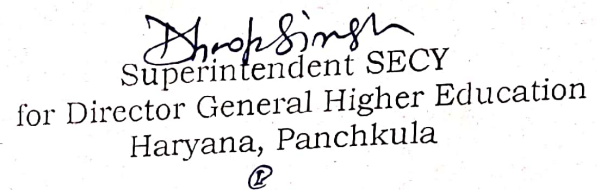 Superintendent SECY
for Director General Higher Education
Haryana, Panchkula